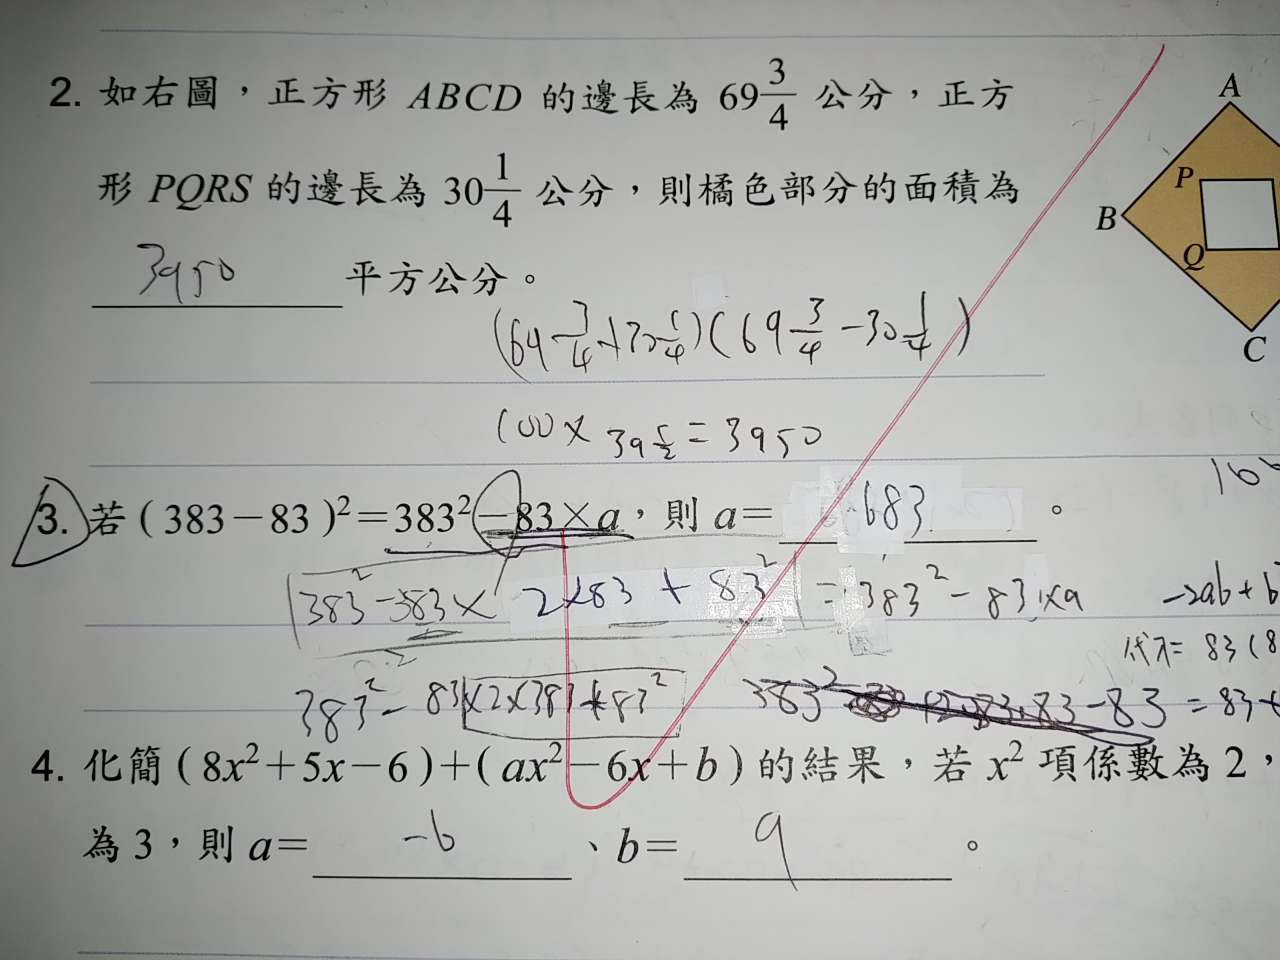 2. 如右圖，正方形 ABCD 的邊長為 69 3/4 公分，正方
形 PQRS 的邊長為 30 1/4 公分，則橘色部分的面積為
3950 平方公分。
A
P
B
Q
C
(69 3/4+30 1/4)(69 3/4-30 1/4)
100×39 5/2=3950
3. 若(383-83)²=383²-83×a，則 a=683。
383²-383×2×83+83²=383²-83×a
→2ab+b
代入=83(8
383²-83×2×383+83²
=83+
4. 化簡(8x²+5x-6)+(ax²-6x+b)的結果，若 x² 項係數為 2，
為 3，則 a=-6、b=9。